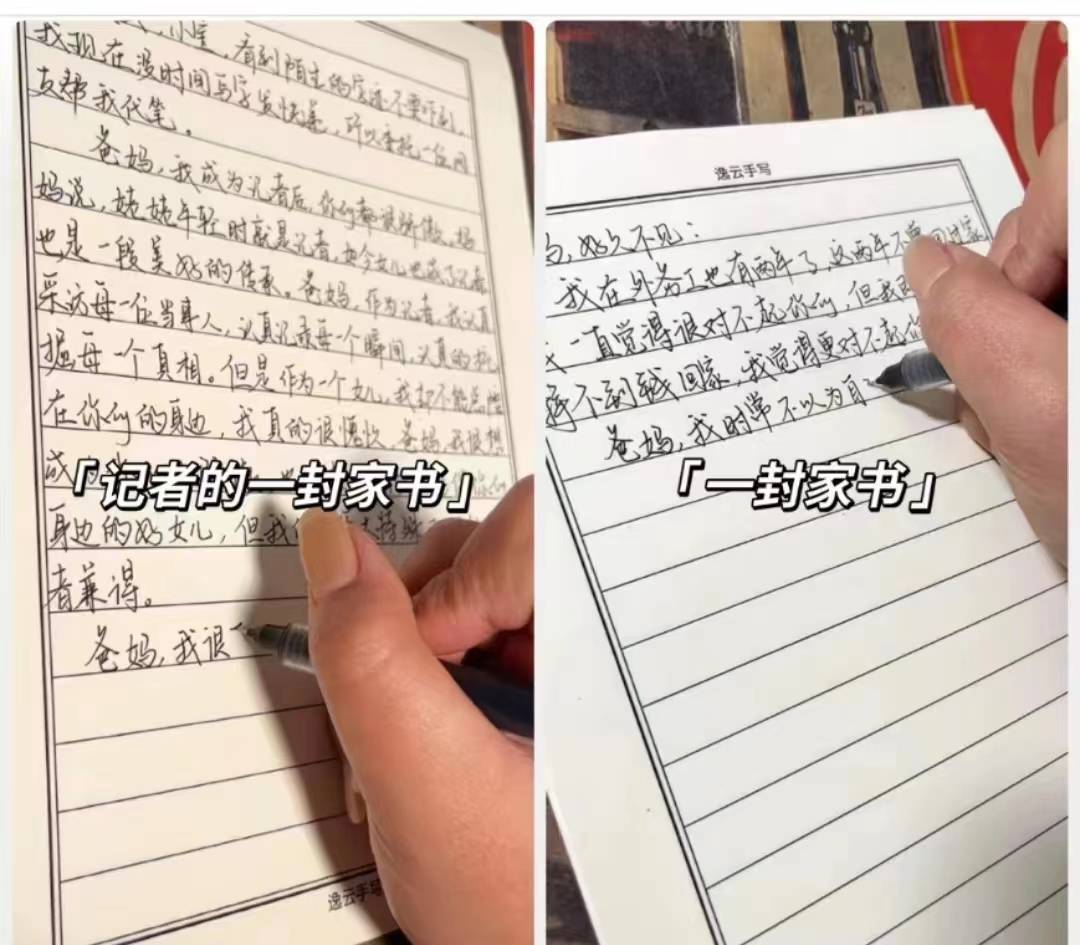 小宝，看到陌生的字迹不要吓到。
我现在没时间写字发快递，所以委托一位网
友帮我代笔。
爸妈，我成为记者后，你们都很骄傲。妈
妈说，姨姨年轻时就是记者，如今女儿也成了记者
也是一段美好的传承。爸妈，作为记者，我认真
采访每一位当事人，认真记录每一个瞬间，认真的挖
掘每一个真相。但是作为一个女儿，我却不能总陪
在你们的身边，我真的很愧疚。爸妈，我很想
成
「记者的一封家书」
身边的好女儿，但我
者兼得。
爸妈，我很
逸云手写
逸云手写
好久不见：
我在外务工也有两年了，这两年不曾回过家
一直觉得很对不起你们，但我
挣不到钱回家，我觉得更对不起你
爸妈，我时常不以为自
「一封家书」